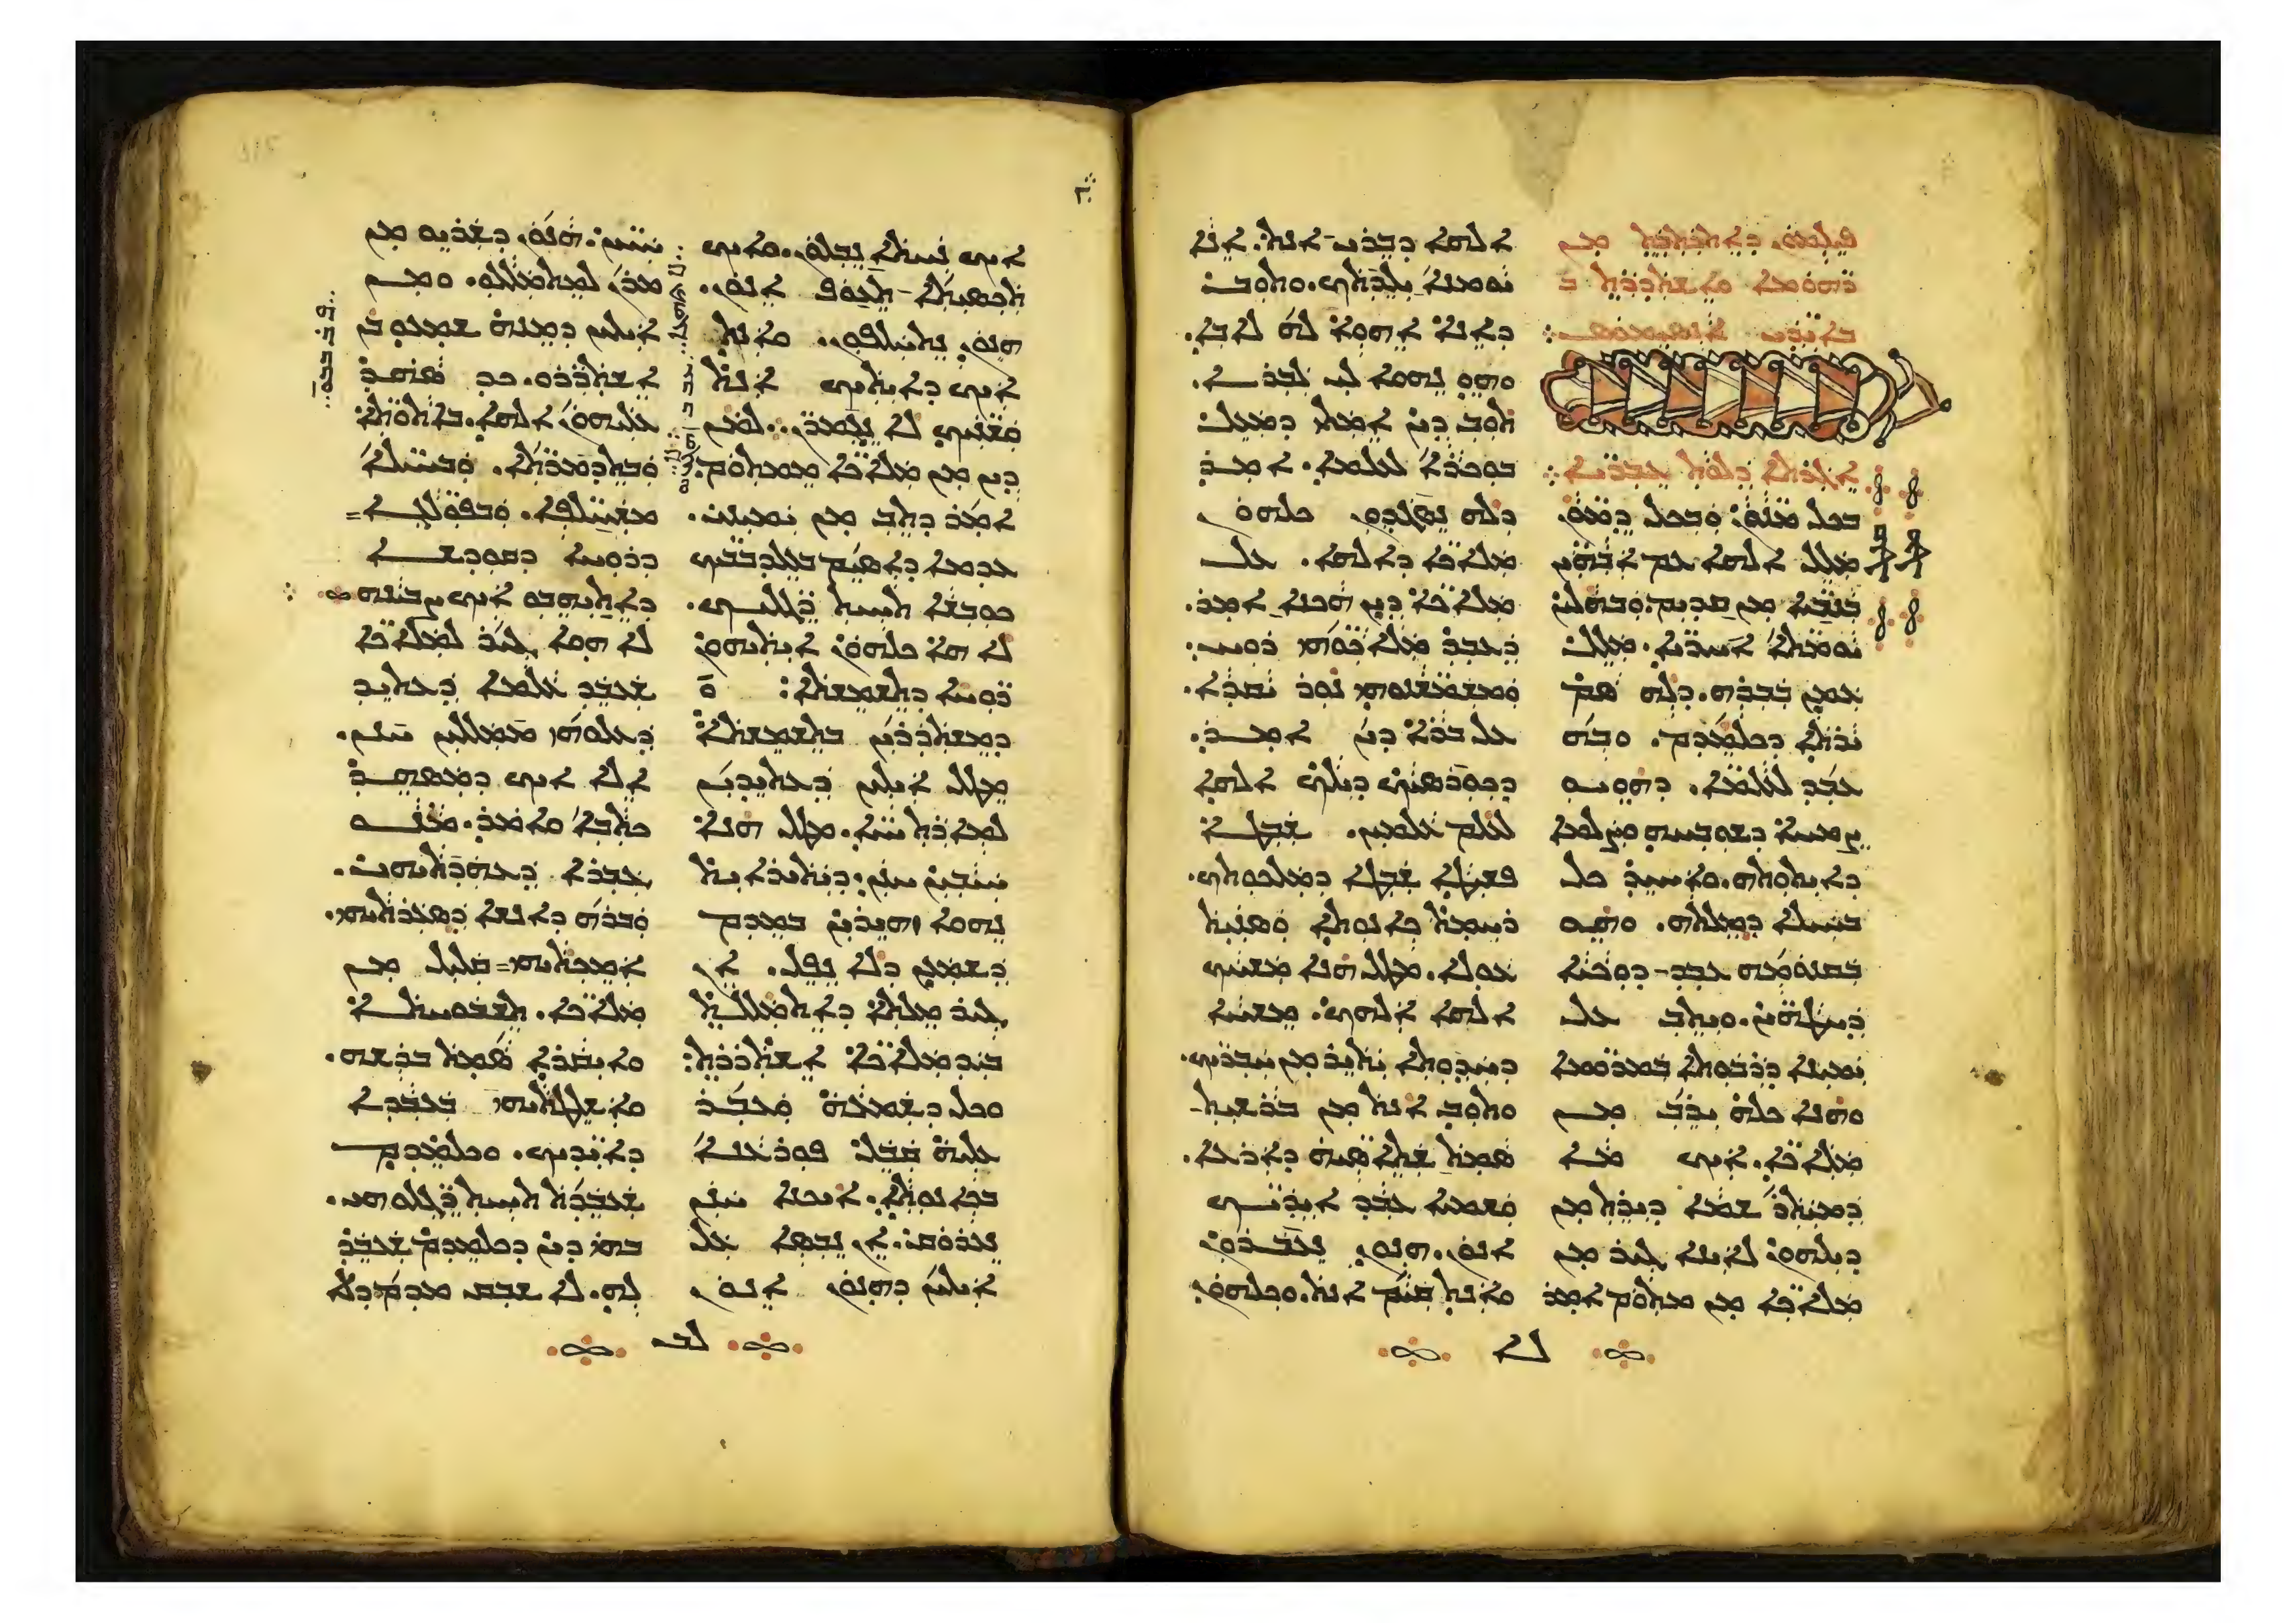 ܦܝܠܡܘܢ. ܕܐܬܟܬܒܬ ܡܢ
ܪܗܘܡܐ ܘܐܫܬܕܪܬ ܒ
ܒܐܝܕܝ ܐܢܣܝܡܘܣ܀
ܐܓܪܬܐ ܕܠܘܬ ܥܒܪܝܐ܀
ܒܟܠ ܡܢܘܢ ܘܒܟܠ ܕܡܘܢ
ܡܠܠ ܐܠܗܐ ܥܡ ܐܒܗܝܢ
ܒܢܒܝܐ ܡܢ ܩܕܝܡ ܘܒܗܠܝܢ
ܝܘܡܬܐ ܐܚܪܝܐ. ܡܠܠ
ܥܡܢ ܒܒܪܗ. ܕܠܗ ܣܡ
ܝܪܬܐ ܕܟܠܡܕܡ. ܘܒܗ
ܥܒܕ ܥܠܡܐ. ܕܗܘܝܘ
ܨܡܚܐ ܕܫܘܒܚܗ ܘܨܠܡܐ
ܕܐܝܬܘܬܗ. ܘܐܚܝܕ ܟܠ
ܒܚܝܠܐ ܕܡܠܬܗ. ܘܗܘ
ܒܩܢܘܡܗ ܥܒܕ ܕܘܟܝܐ
ܕܚܛܗܝܢ. ܘܝܬܒ ܥܠ
ܝܡܝܢܐ ܕܪܒܘܬܐ ܒܡܪܘܡܐ
ܘܗܢܐ ܟܠܗ ܝܪܒ ܡܢ
ܡܠܐܟܐ. ܐܝܟ ܡܐ
ܕܡܝܬܪ ܫܡܐ ܕܝܪܬ ܡܢ
ܕܝܠܗܘܢ ܠܐܝܢܐ ܓܝܪ ܡܢ
ܡܠܐܟܐ ܡܢ ܡܬܘܡ ܐܡܪ
ܐܠܗܐ ܕܒܪܝ ܐܢܬ. ܐܢܐ
ܝܘܡܢܐ ܝܠܕܬܟ. ܘܬܘܒ
ܕܐܢܐ ܐܗܘܐ ܠܗ ܠܐܒܐ.
ܘܗܘ ܢܗܘܐ ܠܝ ܠܒܪܐ.
ܬܘܒ ܕܝܢ ܐܡܬܝ ܕܡܥܠ
ܒܘܟܪܐ ܠܥܠܡܐ. ܐܡܪ
ܕܠܗ ܢܣܓܕܘܢ ܟܠܗܘܢ
ܡܠܐܟܐ ܕܐܠܗܐ. ܥܠ
ܡܠܐܟܐ ܕܝܢ ܗܟܢܐ ܐܡܪ.
ܕܥܒܕ ܡܠܐܟܘܗܝ ܪܘܚ.
ܘܡܫܡܫܢܘܗܝ ܢܘܪ ܝܩܕܐ.
ܥܠ ܒܪܐ ܕܝܢ ܐܡܪ.
ܕܟܘܪܣܝܟ ܕܝܠܟ ܐܠܗܐ
ܠܥܠܡ ܥܠܡܝܢ. ܫܒܛܐ
ܦܫܝܛܐ ܫܒܛܐ ܕܡܠܟܘܬܟ.
ܪܚܡܬ ܟܐܢܘܬܐ ܘܣܢܝܬ
ܥܘܠܐ. ܡܛܠ ܗܢܐ ܡܫܚܟ
ܐܠܗܐ ܐܠܗܟ. ܡܫܚܐ
ܕܚܕܘܬܐ ܝܬܝܪ ܡܢ ܚܒܪܝܟ.
ܘܬܘܒ ܐܢܬ ܡܢ ܒܪܫܝܬ
ܣܡܬ ܫܬܐܣܝܗ ܕܐܪܥܐ.
ܘܫܡܝܐ ܥܒܕ ܐܝܕܝܟ
ܐܢܘܢ. ܗܢܘܢ ܢܥܒܪܘܢ
ܘܐܢܬ ܩܝܡ ܐܢܬ. ܘܟܠܗܘܢ
ܠܐ
ܐܝܟ ܢܚܬܐ ܢܒܠܘܢ. ܘܐܝܟ
ܬܟܣܝܬܐ ܬܥܘܦ ܐܢܘܢ.
ܗܢܘܢ ܢܬܚܠܦܘܢ. ܘܐܢܬ
ܐܝܟ ܕܐܝܬܝܟ ܐܢܬ
ܘܫܢܝܟ ܠܐ ܢܓܡܪܢ. ܠܡܢ
ܕܝܢ ܡܢ ܡܠܐܟܐ ܡܡܬܘܡ
ܐܡܪ ܕܬܒ ܡܢ ܝܡܝܢܝ.
ܥܕܡܐ ܕܐܣܝܡ ܒܥܠܕܒܒܝܟ
ܟܘܒܫܐ ܬܚܝܬ ܪܓܠܝܟ.
ܠܐ ܗܐ ܟܠܗܘܢ ܐܝܬܝܗܘܢ
ܪܘܚܐ ܕܬܫܡܫܬܐ: ܘ
ܕܡܫܬܕܪܝܢ ܒܬܫܡܫܬܐ
ܡܛܠ ܐܝܠܝܢ ܕܥܬܝܕܝܢ
ܠܡܐܪܬ ܚܝܐ. ܡܛܠ ܗܢܐ
ܚܝܒܝܢ ܚܢܢ. ܕܝܬܝܪܐܝܬ
ܢܗܘܐ ܙܗܝܪܝܢ ܒܡܕܡ
ܕܫܡܥܢ ܕܠܐ ܢܦܠ. ܐܢ
ܓܝܪ ܡܠܬܐ ܕܐܬܡܠܠܬ
ܒܝܕ ܡܠܐܟܐ ܐܫܬܪܪܬ:
ܘܟܠ ܕܫܡܥܗ ܘܥܒܪ
ܥܠܝܗ ܩܒܠ ܦܘܪܥܢܐ
ܒܟܐܢܘܬܐ. ܐܝܟܢܐ ܚܢܢ
ܢܥܪܘܩ. ܐܢ ܢܒܣܐ ܥܠ
ܐܝܠܝܢ ܕܗܢܘܢ ܐܢܘܢ
ܚܝܝܢ. ܗܢܘܢ ܕܫܪܝܘ ܡܢ
ܡܪܢ ܠܡܬܡܠܠܘ. ܘܡܢ
ܐܝܠܝܢ ܕܡܢܗ ܫܡܥܘ ܒܢ
ܐܫܬܪܪܘ. ܟܕ ܣܗܕ
ܥܠܝܗܘܢ ܐܠܗܐ. ܒܐܬܘܬܐ
ܘܒܬܕܡܪܬܐ. ܘܒܚܝܠܐ
ܡܫܚܠܦܐ. ܘܒܦܘܠܓܐ
ܕܪܘܚܐ ܕܩܘܕܫܐ
ܕܐܬܝܗܒܘ ܐܝܟ ܨܒܝܢܗ
ܠܐ ܗܘܐ ܓܝܪ ܠܡܠܐܟܐ
ܫܥܒܕ ܥܠܡܐ ܕܥܬܝܕ
ܕܥܠܘܗܝ ܡܡܠܠܝܢ ܚܢܢ.
ܐܠܐ ܐܝܟ ܕܡܣܗܕ
ܟܬܒܐ ܘܐܡܪ. ܡܢܘ
ܓܒܪܐ ܕܥܗܕܬܝܗܝ.
ܘܒܪܗ ܕܐܢܫܐ ܕܣܥܪܬܝܗܝ.
ܐܡܟܬܝܗܝ ܩܠܝܠ ܡܢ
ܡܠܐܟܐ. ܬܫܒܘܚܬܐ
ܘܐܝܩܪܐ ܣܡܬ ܒܪܫܗ.
ܘܐܫܠܛܬܝܗܝ ܒܥܒܕܐ
ܕܐܝܕܝܟ. ܘܟܠܡܕܡ
ܫܥܒܕܬ ܬܚܝܬ ܪܓܠܘܗܝ.
ܒܗܝ ܕܝܢ ܕܟܠܡܕܡ ܫܥܒܕ
ܠܗ. ܠܐ ܫܒܩ ܡܕܡ ܕܠܐ
ܠܒ